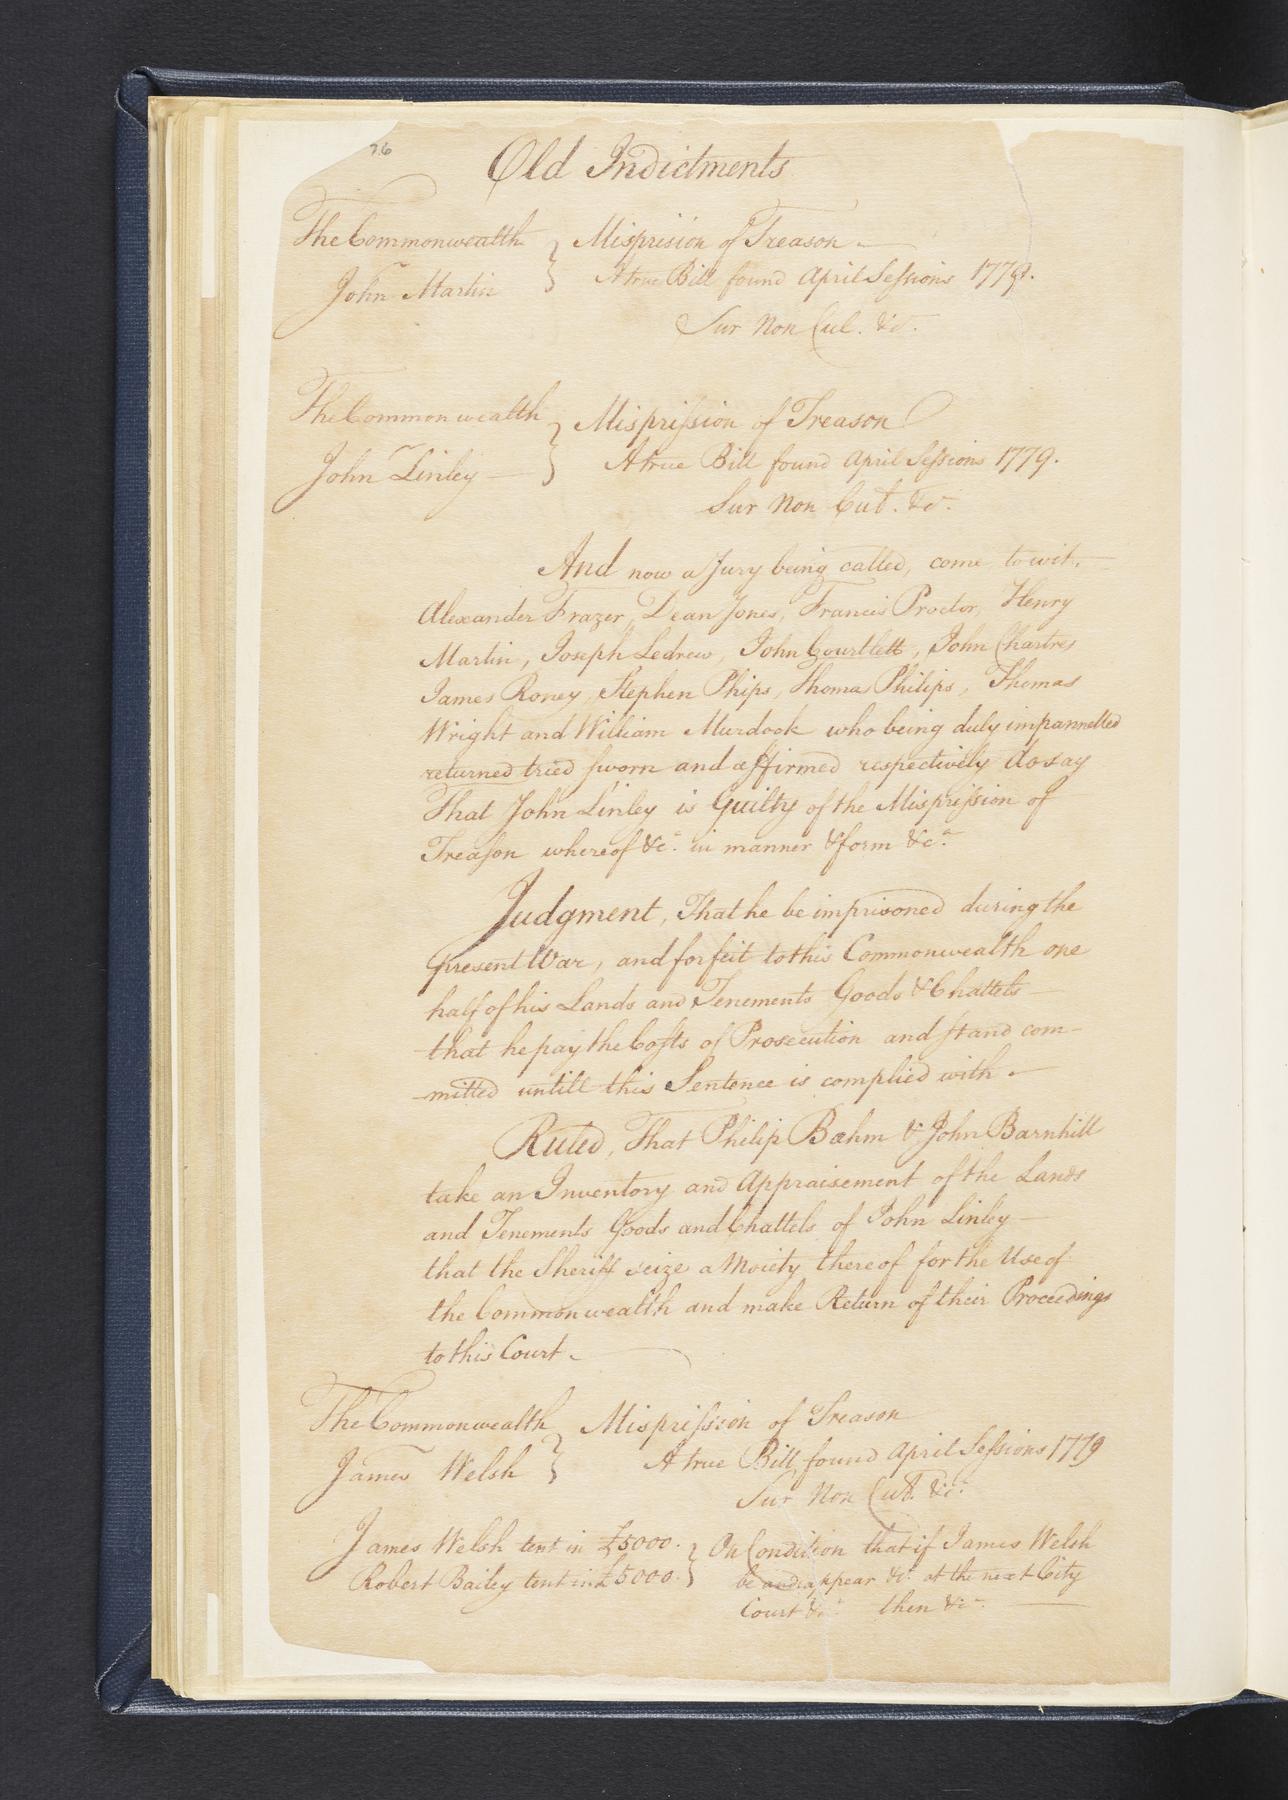 76
Old Indictments
The Commonwealth } Misprision of Treason
John Martin } A true Bill found April Sessions 1779.
Sur Non Cul. &c.
The Commonwealth } Misprission of Treason
John Linley } A true Bill found April Sessions 1779.
Sur Non Cul. &c.
And now a Jury being called, come to wit.
Alexander Frazer, Dean Jones, Francis Proctor, Henry
Martin, Joseph Ledrew, John Courtlett, John Chartres
James Roney, Stephen Phips, Thomas Philips, Thomas
Wright and William Murdock who being duly impannelled
returned tried sworn and affirmed respectively do say
That John Linley is Guilty of the Misprission of
Treason whereof &c. in manner & form &c.
Judgment, That he be imprisoned during the
present War, and forfeit to this Commonwealth one
half of his Lands and Tenements Goods & Chattels
that he pay the Costs of Prosecution and stand com-
mitted untill this Sentence is complied with.
Ruled, That Philip Bœhm & John Barnhill
take an Inventory and Appraisement of the Lands
and Tenements Goods and Chattels of John Linley
that the Sheriff seize a Moiety thereof for the Use of
the Commonwealth and make Return of their Proceedings
to this Court.
The Commonwealth } Misprission of Treason
James Welsh } A true Bill found April Sessions 1779
Sur Non Cul. &c.
James Welsh tent in £5000. } On Condition that if James Welsh
Robert Bailey tent in £5000. } be and appear &c. at the next City
Court &c. then &c.